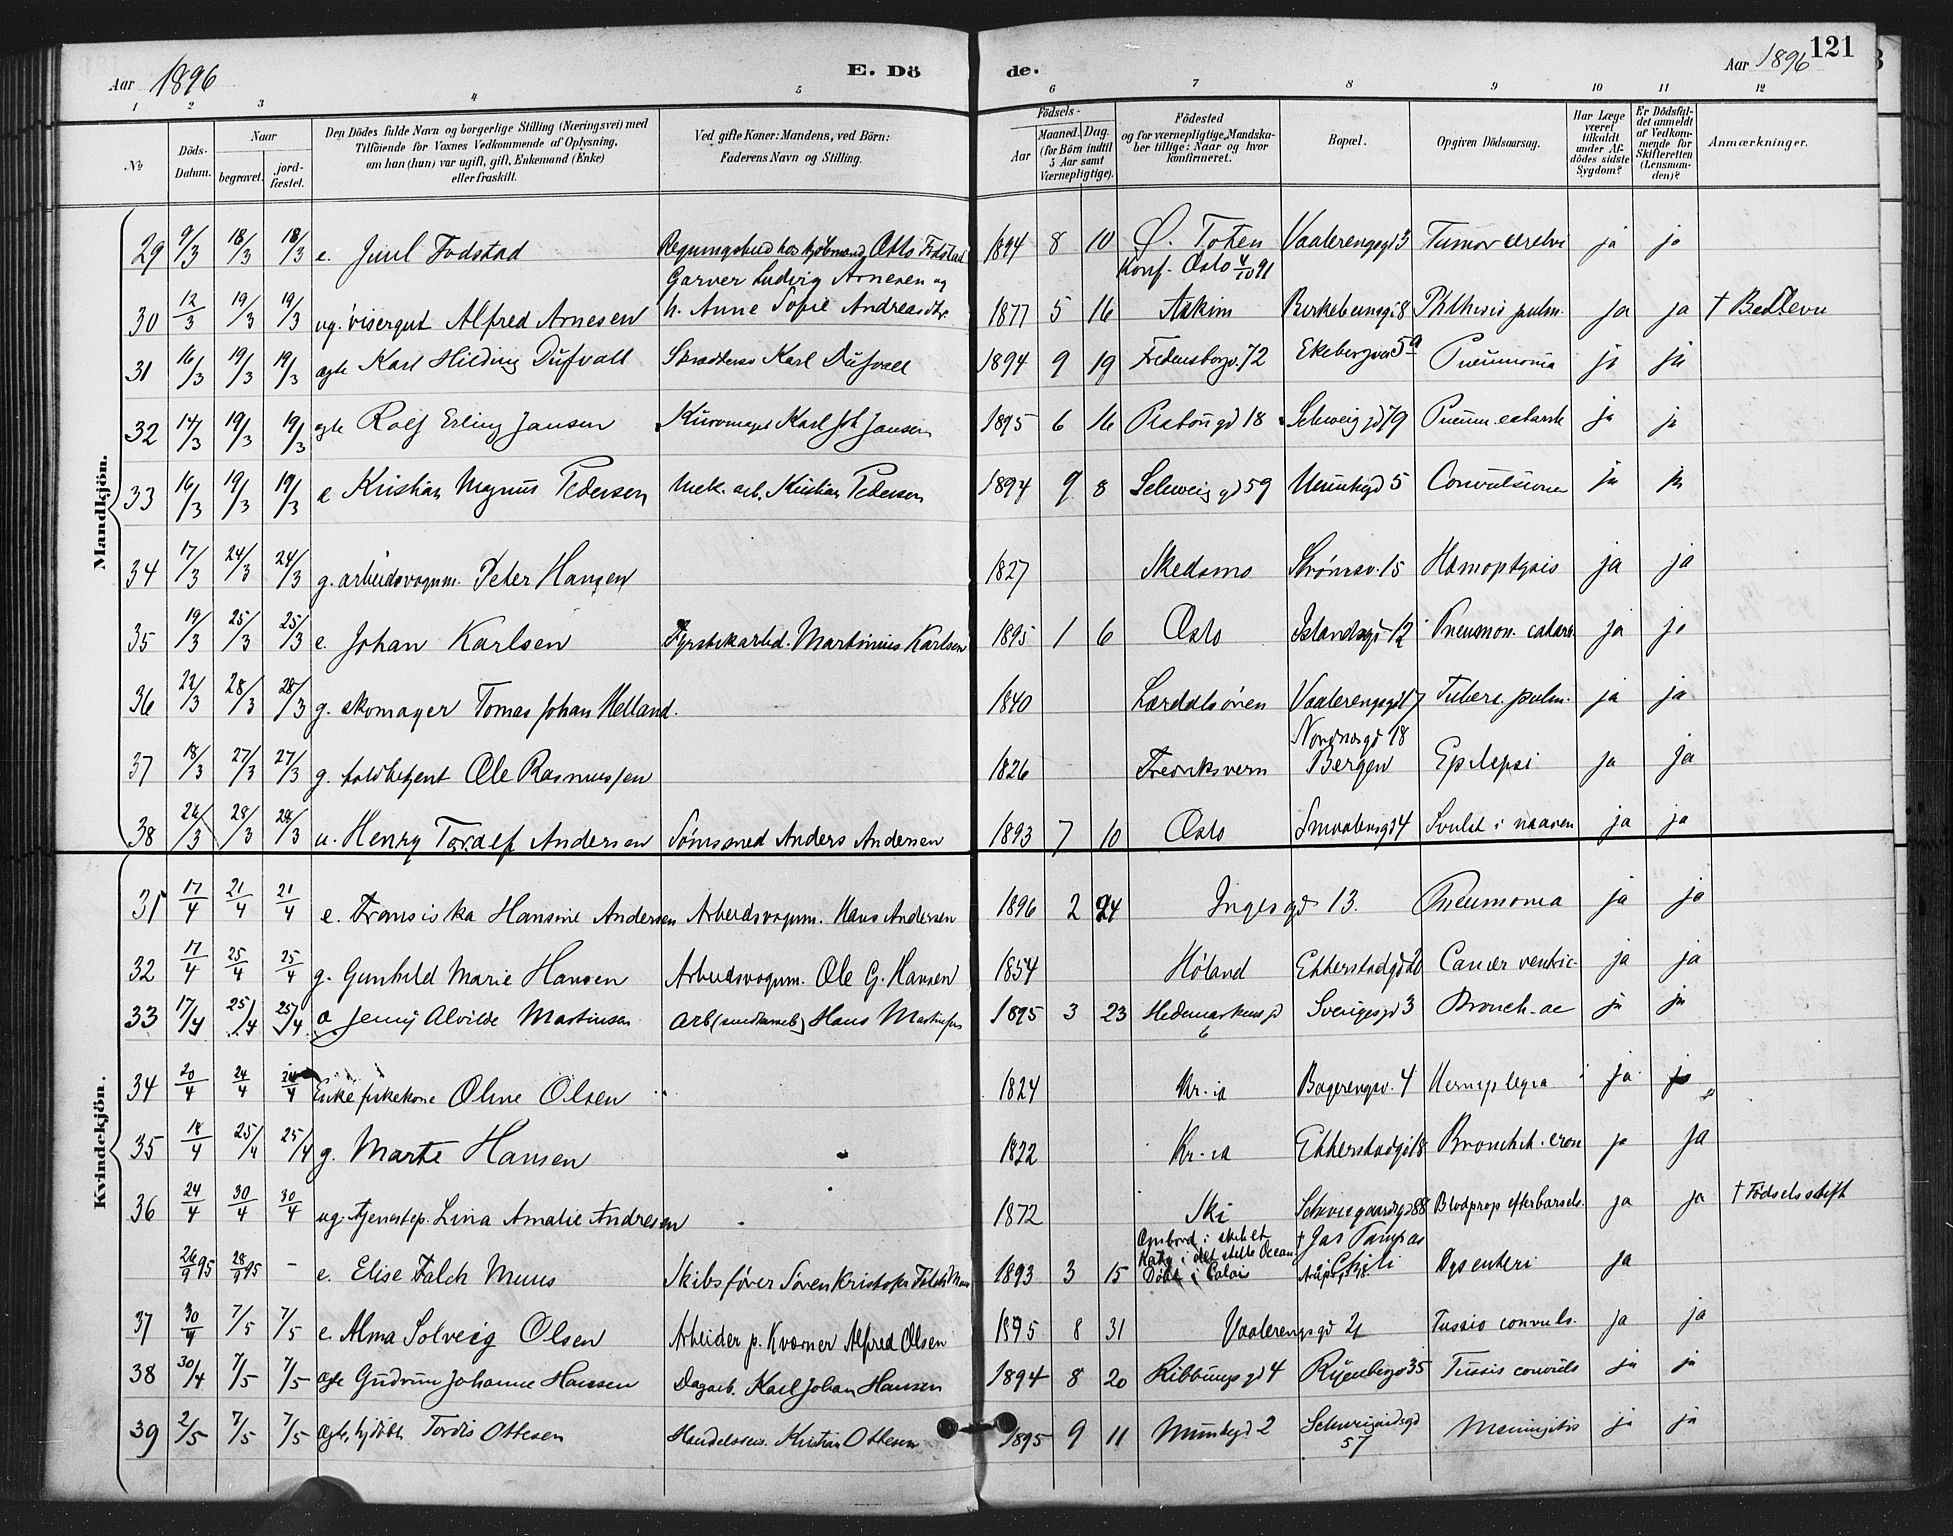 Aar 1896 E. Dö de. Aar 1896 121
1 2 3 4 5 6 7 8 9 10 11 12
No
Döds-Datum.
Naar
begravet.
jord-fæstet.
Den Dödes fulde Navn og borgerlige Stilling (Næringsvei) med
Tilföiende for Voxnes Vedkommende af Oplysning,
om han (hun) var ugift, gift, Enkemand (Enke)
eller fraskilt.
Ved gifte Koner: Mandens, ved Börn:
Faderens Navn og Stilling.
Födsels-
Aar
Maaned. Dag.
(for Börn indtil
5 Aar samt
Værnepligtige).
Födested
og for værnepligtige Mandska-
ber tillige: Naar og hvor
konfirmeret.
Bopæl.
Opgiven Dödsaarsag.
Har Læge
været
tilkaldt
under Af-
dödes sidste
Sygdom?
Er Dödsfal-
det anmeldt
af Vedkom-
mende for
Skifteretten
(Lensman-
den)?
Anmærkninger.
Mandkjön.
29 9/3 18/3 18/3 e. Juul Fodstad Otto Fodstad 1894 8 10 Ø. Toten Vaalerengsgd 3 Tumor cerebri ja ja
Garver Ludvig Arnesen og Konf. Oslo 4/10 91
30 12/3 19/3 19/3 ug. visergut Alfred Arnesen h. Anne Sofie Andreasdtr. 1877 5 16 Askim Birkebeinsgd 8 Phthisis pulm. ja ja
31 16/3 19/3 19/3 ægte Karl Hilding Dufvall Skrædder Karl Dufvall 1894 9 19 Fredensborgv. 72 Ekebergvei 5a Pneumonia ja ja
32 14/3 19/3 19/3 ægte Rolf Erling Jansen Kurvmager Karl Joh Jansen 1895 6 16 Platougd 18 Schweigd 79 Pneum. catarrh ja ja
33 16/3 19/3 19/3 e Kristian Magnus Pedersen Mek. arb. Kristian Pedersen 1894 9 8 Schweigd 59 Munkegd 5 Convulsioner ja ja
34 17/3 24/3 24/3 g. arbeidsvognm. Peter Hansen 1827 Skedsmo Strømsv. 15 Hæmoptysis ja ja
35 19/3 25/3 25/3 e. Johan Karlsen Fyrstikarbd. Martinius Karlsen 1895 1 6 Oslo Islandsgd 12 Pneumon. catarr. ja ja
36 22/3 28/3 28/3 g. skomager Tomas Johan Helland. 1840 Lærdalsören Vaalerengsgd 17 Tuberc. pulm. ja ja
Nordnesgd 18
37 18/3 27/3 27/3 g. toldbetjent Ole Rasmussen 1826 Fredriksvern Bergen Epilepsi ja ja
38 22/3 28/3 28/3 u. Henry Toralf Andersen Sömsmed Anders Andersen 1893 7 10 Oslo Smaalensgd 4 Svulst i maven ja ja
Kvindekjön.
31 17/4 21/4 21/4 e. Fransiska Hansine Andersen Arbeidsvognm. Hans Andersen 1896 2 24 Ingesgd 13. Pneumonia ja ja
32 17/4 25/4 25/4 g. Gunhild Marie Hansen Arbeidsvognm. Ole G. Hansen 1854 Höland Etterstadgd 20 Cancer ventric. ja ja
33 17/4 25/4 25/4 Jenny Alvilde Martinsen Arb. Hans Martinsen 1895 3 23 Hedemarkens gd 6 Sverigesgd 3 Bronch. ac ja ja
34 20/4 24/4 24/4 Enke fiskekone Oline Olsen 1824 Kr-ia Bogerengsv. 4 Hemiplegia ja ja
35 18/4 25/4 25/4 g. Marte Hansen 1822 Kr-ia Etterstadgd 18 Bronchit. cron ja ja
36 24/4 30/4 30/4 ug. tjenestep. Lina Amalie Andresen 1872 Ski Schweigaardsgd 88 Blodprop efter barsels. ja ja † Födselsstift
26/9 95 28/9 95 - e. Elise Falch Muus Skibsförer Sören Kristofer Falch Muus 1893 3 15 Ombord i skibet Chili Dysenteri ja
37 30/4 7/5 7/5 e. Alma Solveig Olsen Arbeider p. Kværner Alfred Olsen 1895 8 31 Vaalerengsgd 21 Tussis convuls. ja ja
38 30/4 7/5 7/5 ægte Gudrun Johanne Hansen Dagarb. Karl Johan Hansen 1894 8 20 Ribbungsgd 4 Ryenbergd 35 Tussis convuls ja ja
39 2/5 7/5 7/5 ægte, hjdöbt Tordis Ottesen Kristian Ottesen 1895 9 11 Munkegd 2 Schweigaardsgd 57 Meningitis ja ja